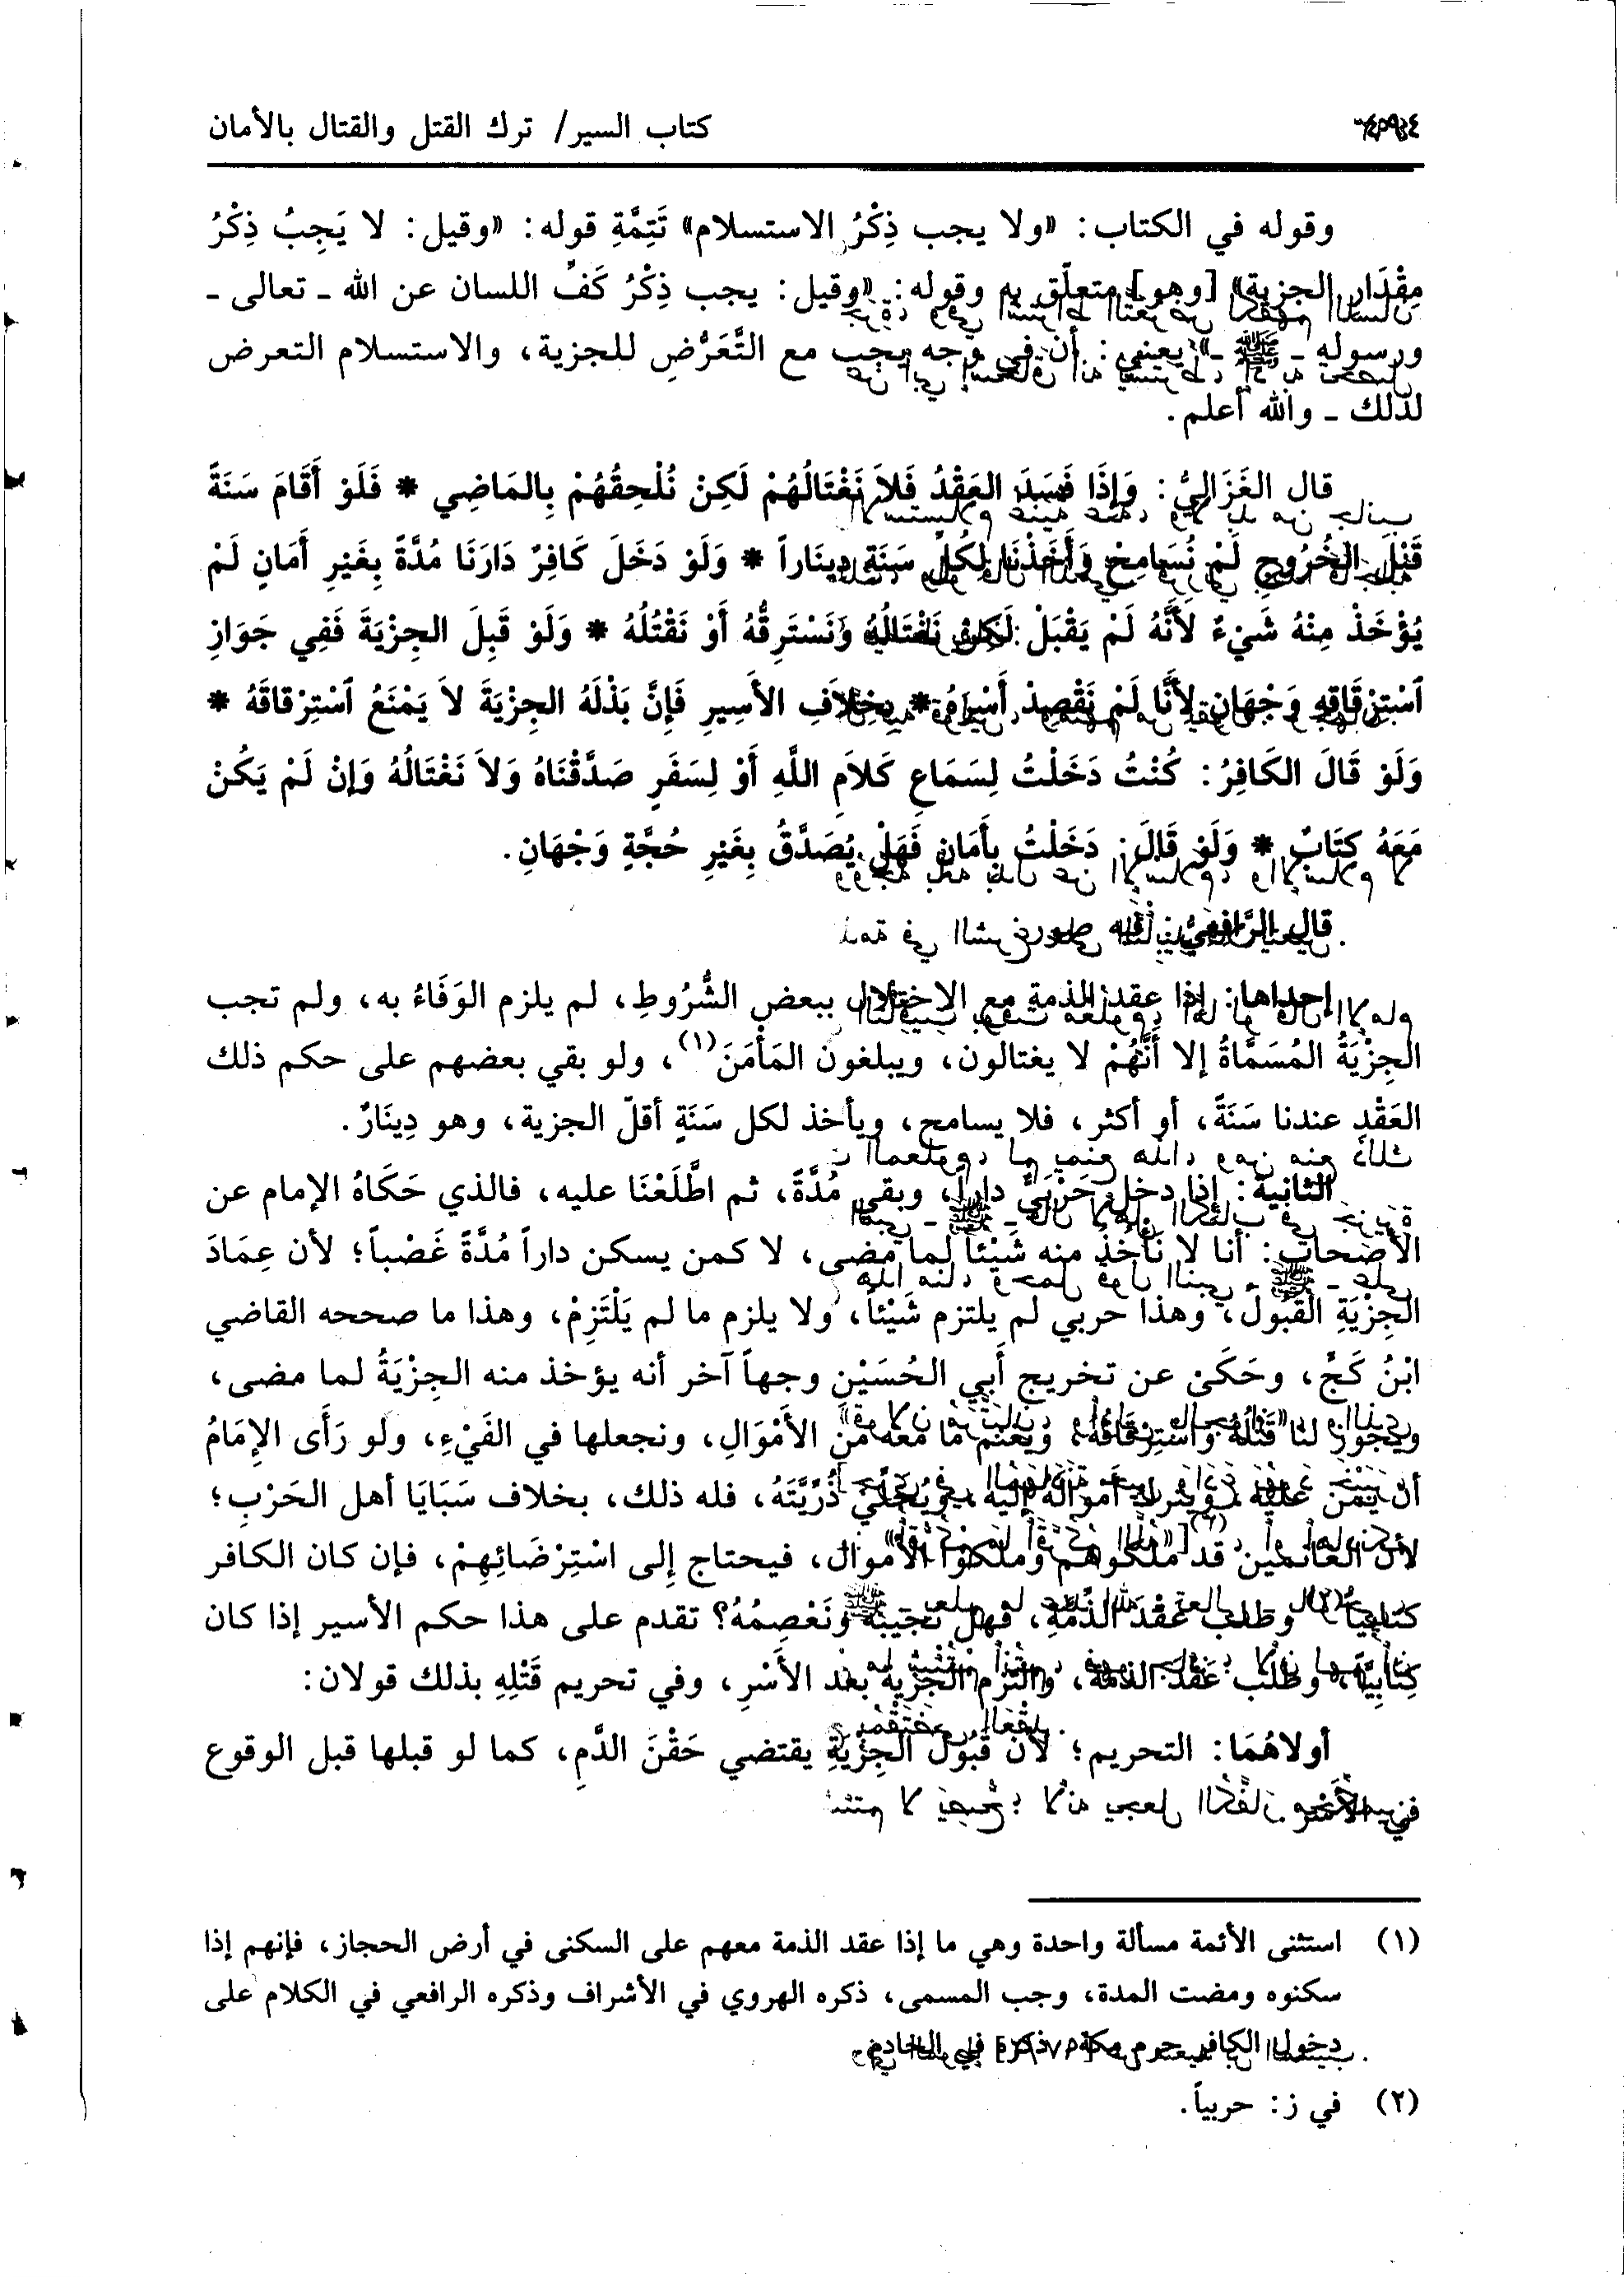 كتاب السير/ ترك القتل والقتال بالأمان
وقوله في الكتاب: «ولا يجب ذِكْرُ الاستسلام» تَتِمَّةِ قوله: «وقيل: لا يَجِبُ ذِكْرُ
مِقْدَارِ الجزية» [وهو] متعلّق به وقوله: «وقيل: يجب ذِكْرُ كَفِّ اللسان عن الله ـ تعالى ـ
ورسوله ـ ﷺ ـ» يعني: أن في وجه يجب مع التَّعَرُّضِ للجزية، والاستسلام التعرض
لذلك ـ والله أعلم.
قال الغَزَالِيُّ: وَإِذَا فَسَدَ العَقْدُ فَلاَ نَغْتَالُهُمْ لَكِنْ نُلْحِقُهُمْ بِالمَاضِي * فَلَوْ أَقَامَ سَنَةً
قَبْلَ الخُرُوجِ لَمْ نُسَامِحْ وَأَخَذْنَا لِكُلِّ سَنَةٍ دِينَاراً * وَلَوْ دَخَلَ كَافِرٌ دَارَنَا مُدَّةً بِغَيْرِ أَمَانٍ لَمْ
يُؤْخَذْ مِنْهُ شَيْءٌ لأَنَّهُ لَمْ يَقْبَلْ لَكِنْ نَغْتَالُهُ وَنَسْتَرِقُّهُ أَوْ نَقْتُلُهُ * وَلَوْ قَبِلَ الجِزْيَةَ فَفِي جَوَازِ
ٱسْتِرْقَاقِهِ وَجْهَانِ لأَنَّا لَمْ نَقْصِدْ أَسْرَهُ * بِخِلاَفِ الأَسِيرِ فَإِنَّ بَذْلَهُ الجِزْيَةَ لاَ يَمْنَعُ ٱسْتِرْقاقَهُ *
وَلَوْ قَالَ الكَافِرُ: كُنْتُ دَخَلْتُ لِسَمَاعِ كَلاَمِ اللَّهِ أَوْ لِسَفَرٍ صَدَّقْنَاهُ وَلاَ نَغْتَالُهُ وَإِنْ لَمْ يَكُنْ
مَعَهُ كِتَابٌ * وَلَوْ قَالَ: دَخَلْتُ بِأَمَانٍ فَهَلْ يُصَدَّقُ بِغَيْرِ حُجَّةٍ وَجْهَانِ.
قال الرَّافِعِيُّ: فيه صور
إحداها: إذا عقد الذمة مع الإختلال ببعض الشُّرُوطِ، لم يلزم الوَفَاءُ به، ولم تجب
الجِزْيَةُ المُسَمَّاةُ إلا أَنَّهُمْ لا يغتالون، ويبلغون المَأْمَنَ(١)، ولو بقي بعضهم على حكم ذلك
العَقْدِ عندنا سَنَةً، أو أكثر، فلا يسامح، ويأخذ لكل سَنَةٍ أقلّ الجزية، وهو دِينَارٌ.
الثانية: إذا دخل حَرْبِيٌّ داراً، وبقي مُدَّةً، ثم اطَّلَعْنَا عليه، فالذي حَكَاهُ الإمام عن
الأصحاب: أنا لا نَأْخُذُ منه شَيْئاً لما مضى، لا كمن يسكن داراً مُدَّةً غَصْباً؛ لأن عِمَادَ
الجِزْيَةِ القَبُولُ، وهذا حربي لم يلتزم شَيْئاً، ولا يلزم ما لم يَلْتَزِمْ، وهذا ما صححه القاضي
ابْنُ كَجٍّ، وحَكَىٰ عن تخريج أَبِي الحُسَيْنِ وجهاً آخر أنه يؤخذ منه الجِزْيَةُ لما مضى،
ويجوز لنا قَتْلُهُ وَاسْتِرْقَاقُهُ، ويغنم ما معه من الأَمْوَالِ، ونجعلها في الفَيْءِ، ولو رَأَى الإِمَامُ
أن يَمُنَّ عليه، ويترك أمواله إليه، ويُخَلِّيَ ذُرِّيَّتَهُ، فله ذلك، بخلاف سَبَايَا أهل الحَرْبِ؛
لأن الغانمين قد ملكوهم وملكوا الأموال، فيحتاج إِلى اسْتِرْضَائِهِمْ، فإن كان الكافر
كتابياً(٢) وطلب عَقْدَ الذِّمَّةِ، فهل نجيبه ونَعْصِمُهُ؟ تقدم على هذا حكم الأسير إذا كان
كِتَابِيًّا، وطلب عَقْدَ الذمة، والتزم الجزية بعد الأَسْرِ، وفي تحريم قَتْلِهِ بذلك قولان:
أولاهُمَا: التحريم؛ لأن قَبُولَ الجِزْيَةِ يقتضي حَقْنَ الدَّمِ، كما لو قبلها قبل الوقوع
في الأسر.
(١) استثنى الأئمة مسألة واحدة وهي ما إذا عقد الذمة معهم على السكنى في أرض الحجاز، فإنهم إذا
سكنوه ومضت المدة، وجب المسمى، ذكره الهروي في الأشراف وذكره الرافعي في الكلام على
دخول الكافر حرم مكة، ذكره في الخادم.
(٢) في ز: حربياً.